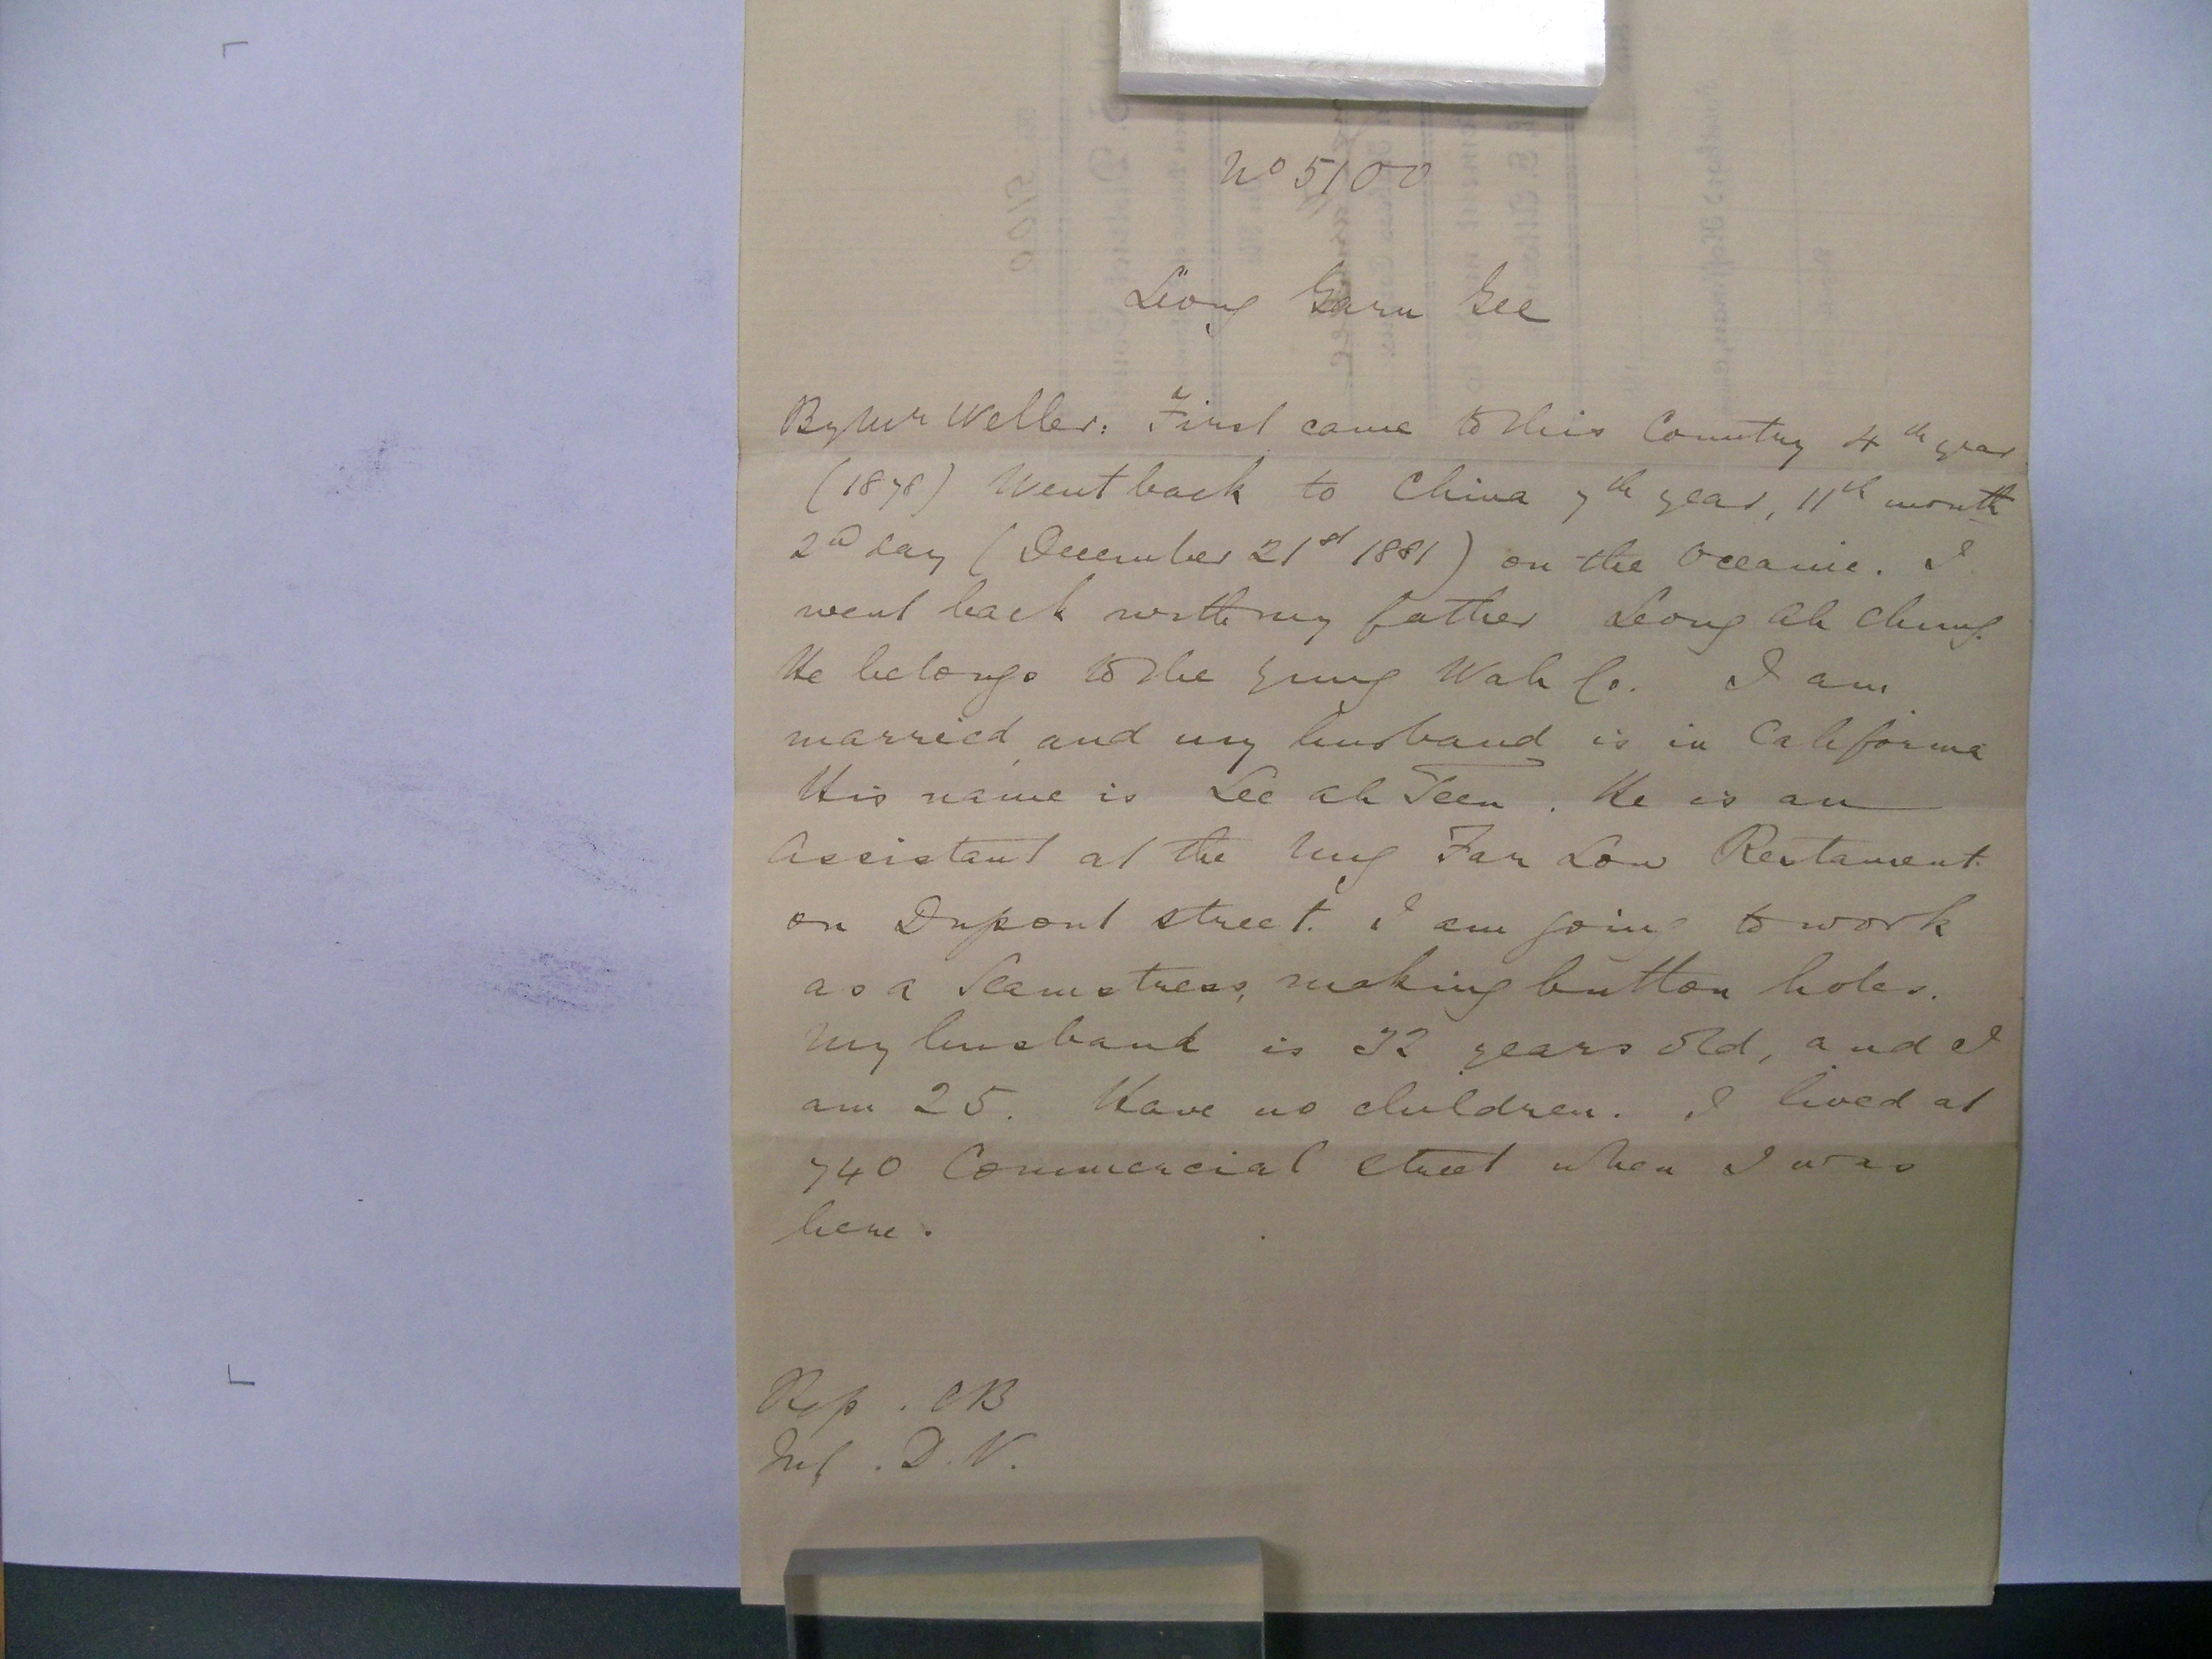 No 5100
Leong Garn Gee
By Mr Weller: First came to this Country 4th year
(1878) Went back to China 7th year, 11th month
2d day (December 21st 1881) on the Oceanic. I
went back with my father Leong Ah Chung.
He belongs to the Yung Wah Co. I am
married, and my husband is in California
His name is Lee Ah Teen. He is an
Assistant at the Ung Fan Low Restaurent
on Dupont street. I am going to work
as a Seamstress, making button holes.
My husband is 32 years old, and I
am 25. Have no children. I lived at
740 Commercial Street when I was
here.
Rep. CB
Int. D.V.